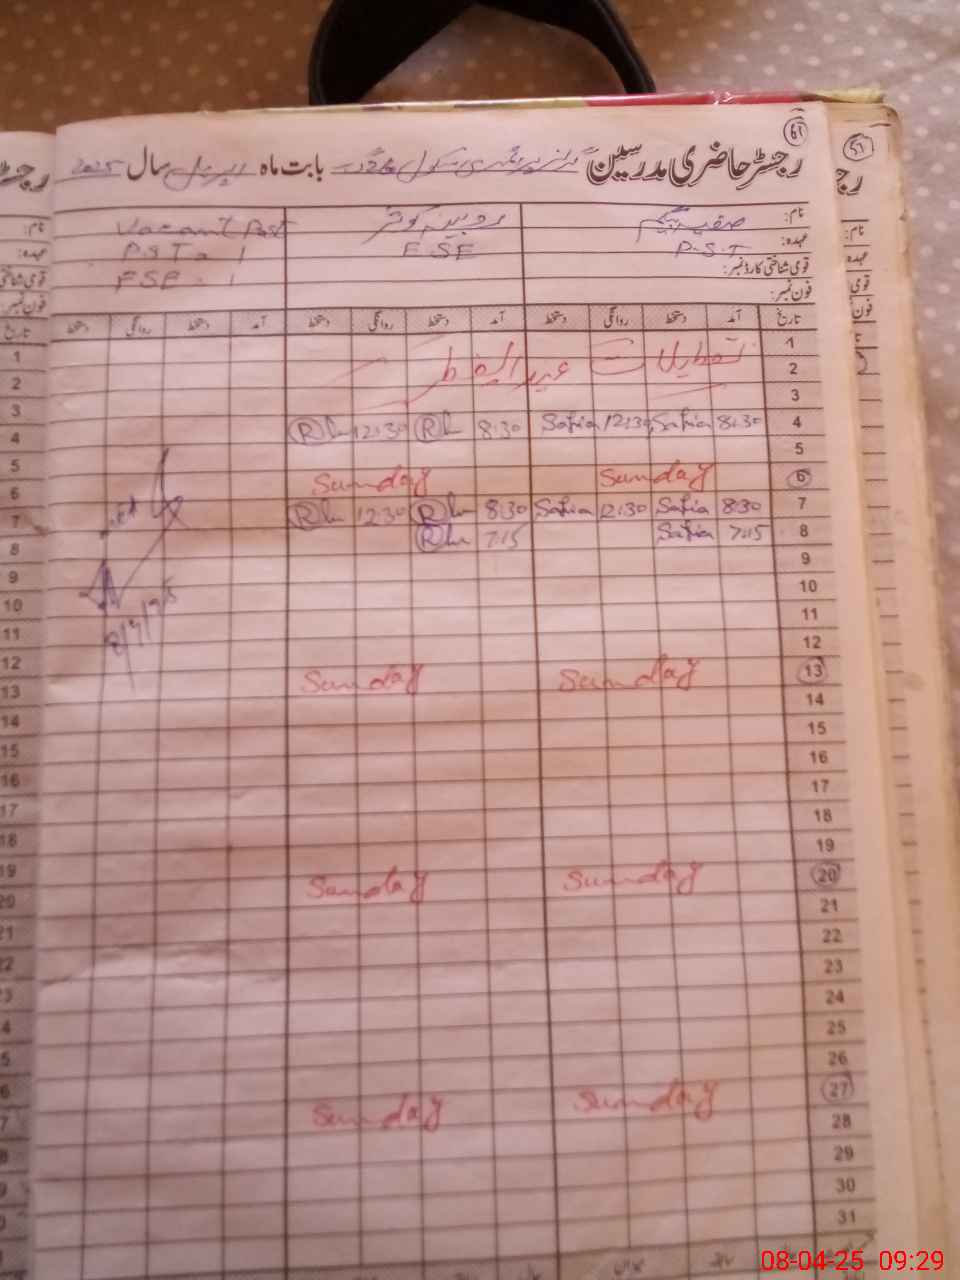 61
رجسٹر حاضری مدرسین گرلز پرائمری سکول بابت ماہ اپریل سال 2025
نام: صفیہ بیگم روبینہ کوثر Vacant Post
عہدہ: P.S.T ESE P.S.T = 1
قومی شناختی کارڈ نمبر: ESE = 1
فون نمبر:
تاریخ آمد دستخط روانگی دستخط آمد دستخط روانگی دستخط آمد دستخط روانگی دستخط
1
2 تعطیلات عید الفطر
3
4 8:30 Safia 12:30 Safia 8:30 12:30
5
6 Sunday Sunday
7 8:30 Safia 12:30 Safia 8:30 12:30
8 7:15 Safia 7:15
9
10
11
12
13 Sunday Sunday
14
15
16
17
18
19
20 Sunday Sunday
21
22
23
24
25
26
27 Sunday Sunday
28
29
30
31
57
08-04-25 09:29